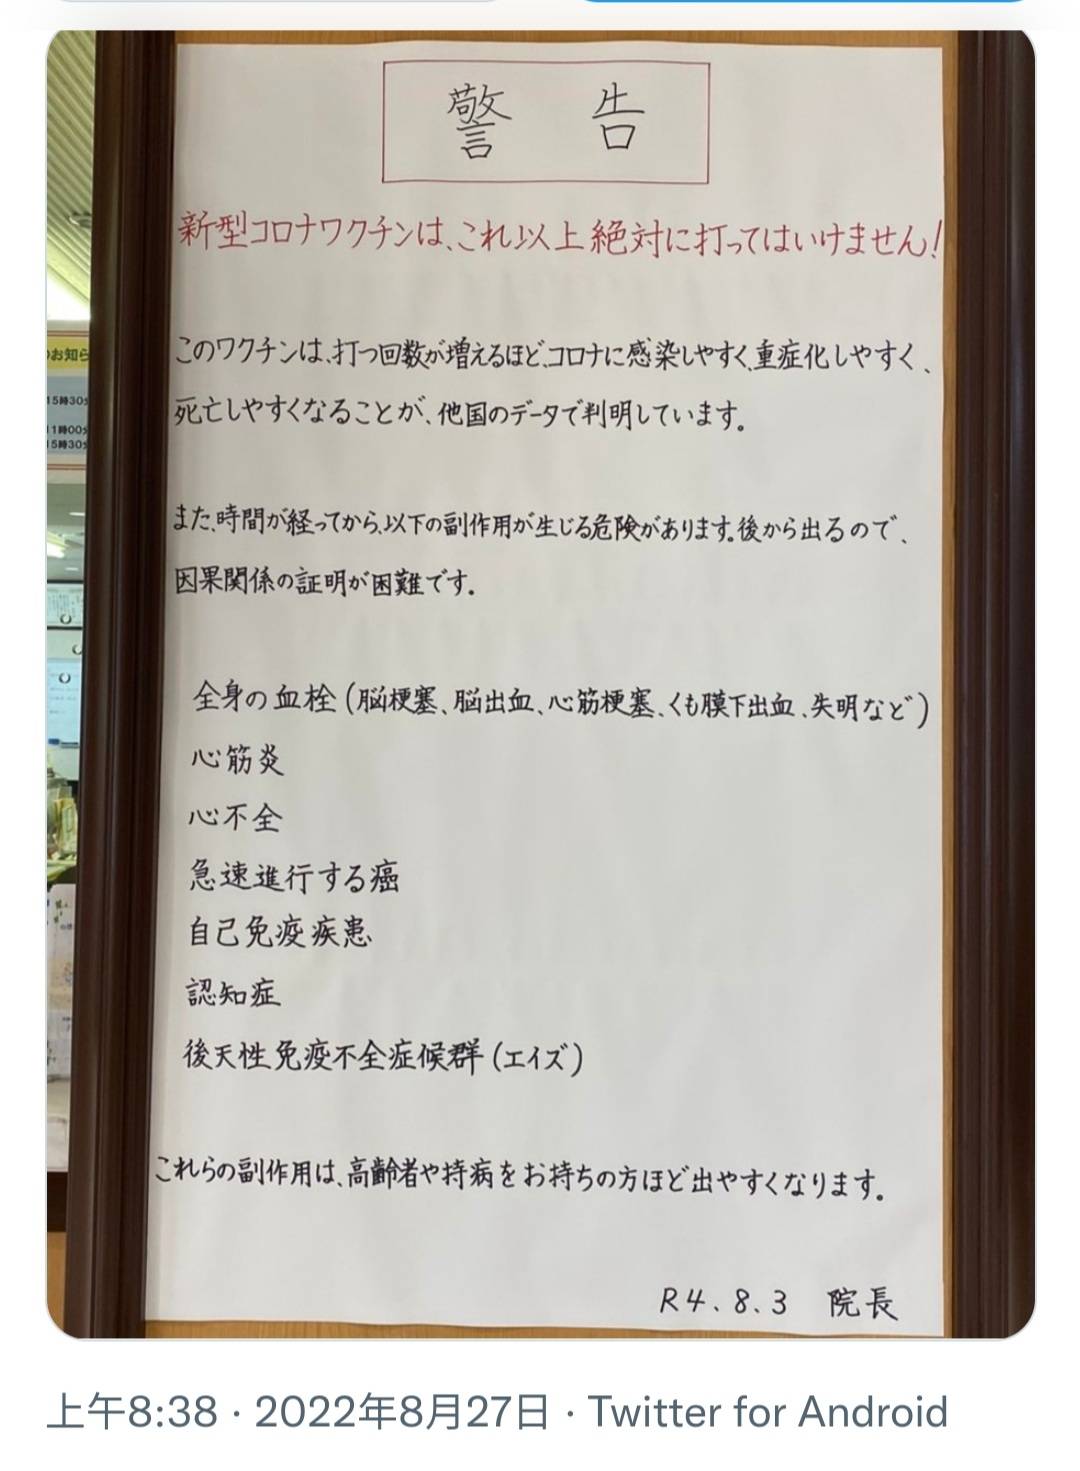 警告
新型コロナワクチンは、これ以上絶対に打ってはいけません!
このワクチンは、打つ回数が増えるほど、コロナに感染しやすく、重症化しやすく、
死亡しやすくなることが、他国のデータで判明しています。
また、時間が経ってから、以下の副作用が生じる危険があります。後から出るので、
因果関係の証明が困難です。
全身の血栓(脳梗塞、脳出血、心筋梗塞、くも膜下出血、失明など)
心筋炎
心不全
急速進行する癌
自己免疫疾患
認知症
後天性免疫不全症候群(エイズ)
これらの副作用は、高齢者や持病をお持ちの方ほど出やすくなります。
R4.8.3 院長
お知ら
15時30分
11時00分
15時30分
上午8:38 · 2022年8月27日 · Twitter for Android